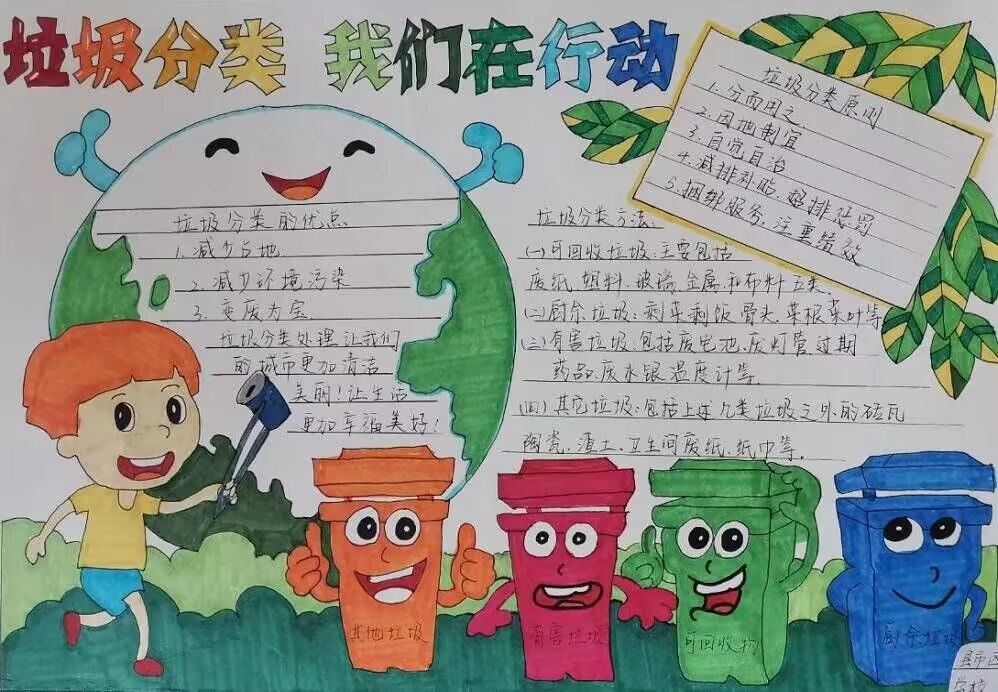 垃圾分类 我们在行动
垃圾分类原则
1.分而用之
2.因地制宜
3.自觉自治
4.减排补贴,超排惩罚
5.捆绑服务,注重绩效
垃圾分类的优点
1.减少占地
2.减少环境污染
3.变废为宝
垃圾分类处理让我们
的城市更加清洁
美丽!让生活
更加幸福美好!
垃圾分类方法:
(一)可回收垃圾:主要包括
废纸、塑料、玻璃、金属、和布料五类。
(二)厨余垃圾:剩菜剩饭骨头、菜根菜叶等
(三)有害垃圾:包括废电池、废灯管过期
药品、废水银温度计等。
(四)其它垃圾:包括上述几类垃圾之外的砖瓦
陶瓷、渣土、卫生间废纸、纸巾等。
其他垃圾
有害垃圾
可回收物
厨余垃圾
县市区
学校